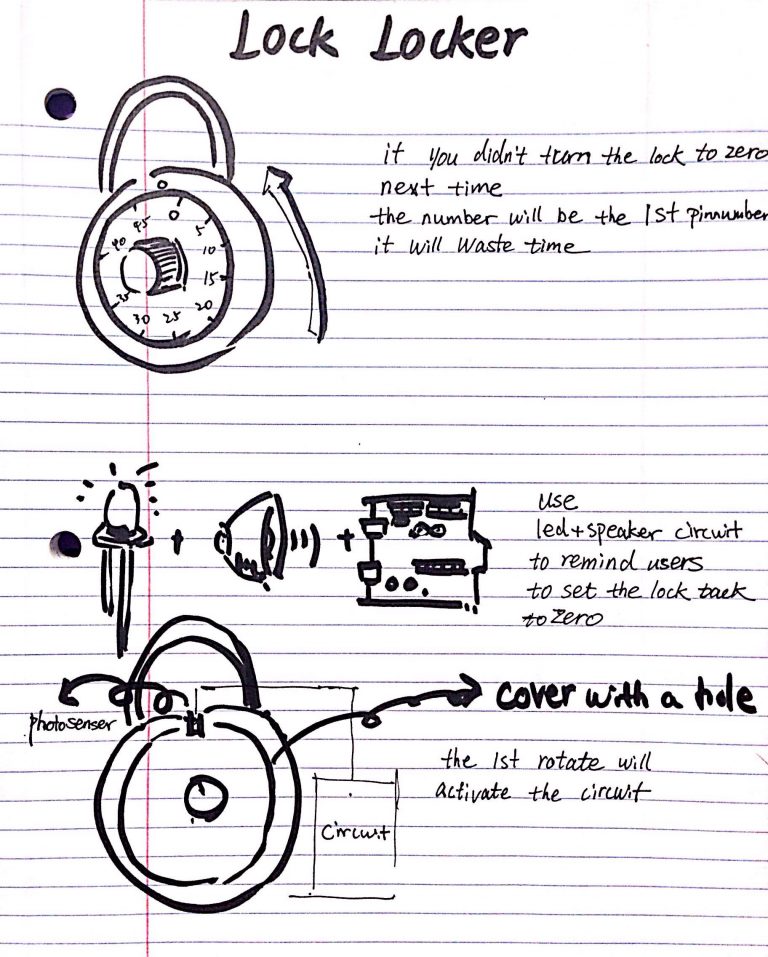 Lock Locker
if you didn't turn the lock to zero
next time
the number will be the 1st pinnumber
it will waste time
0
0
5
10
15
20
25
30
35
40
45
use
led+speaker circuit
to remind users
to set the lock back
to zero
cover with a hole
photosenser
the 1st rotate will
activate the circuit
circuit